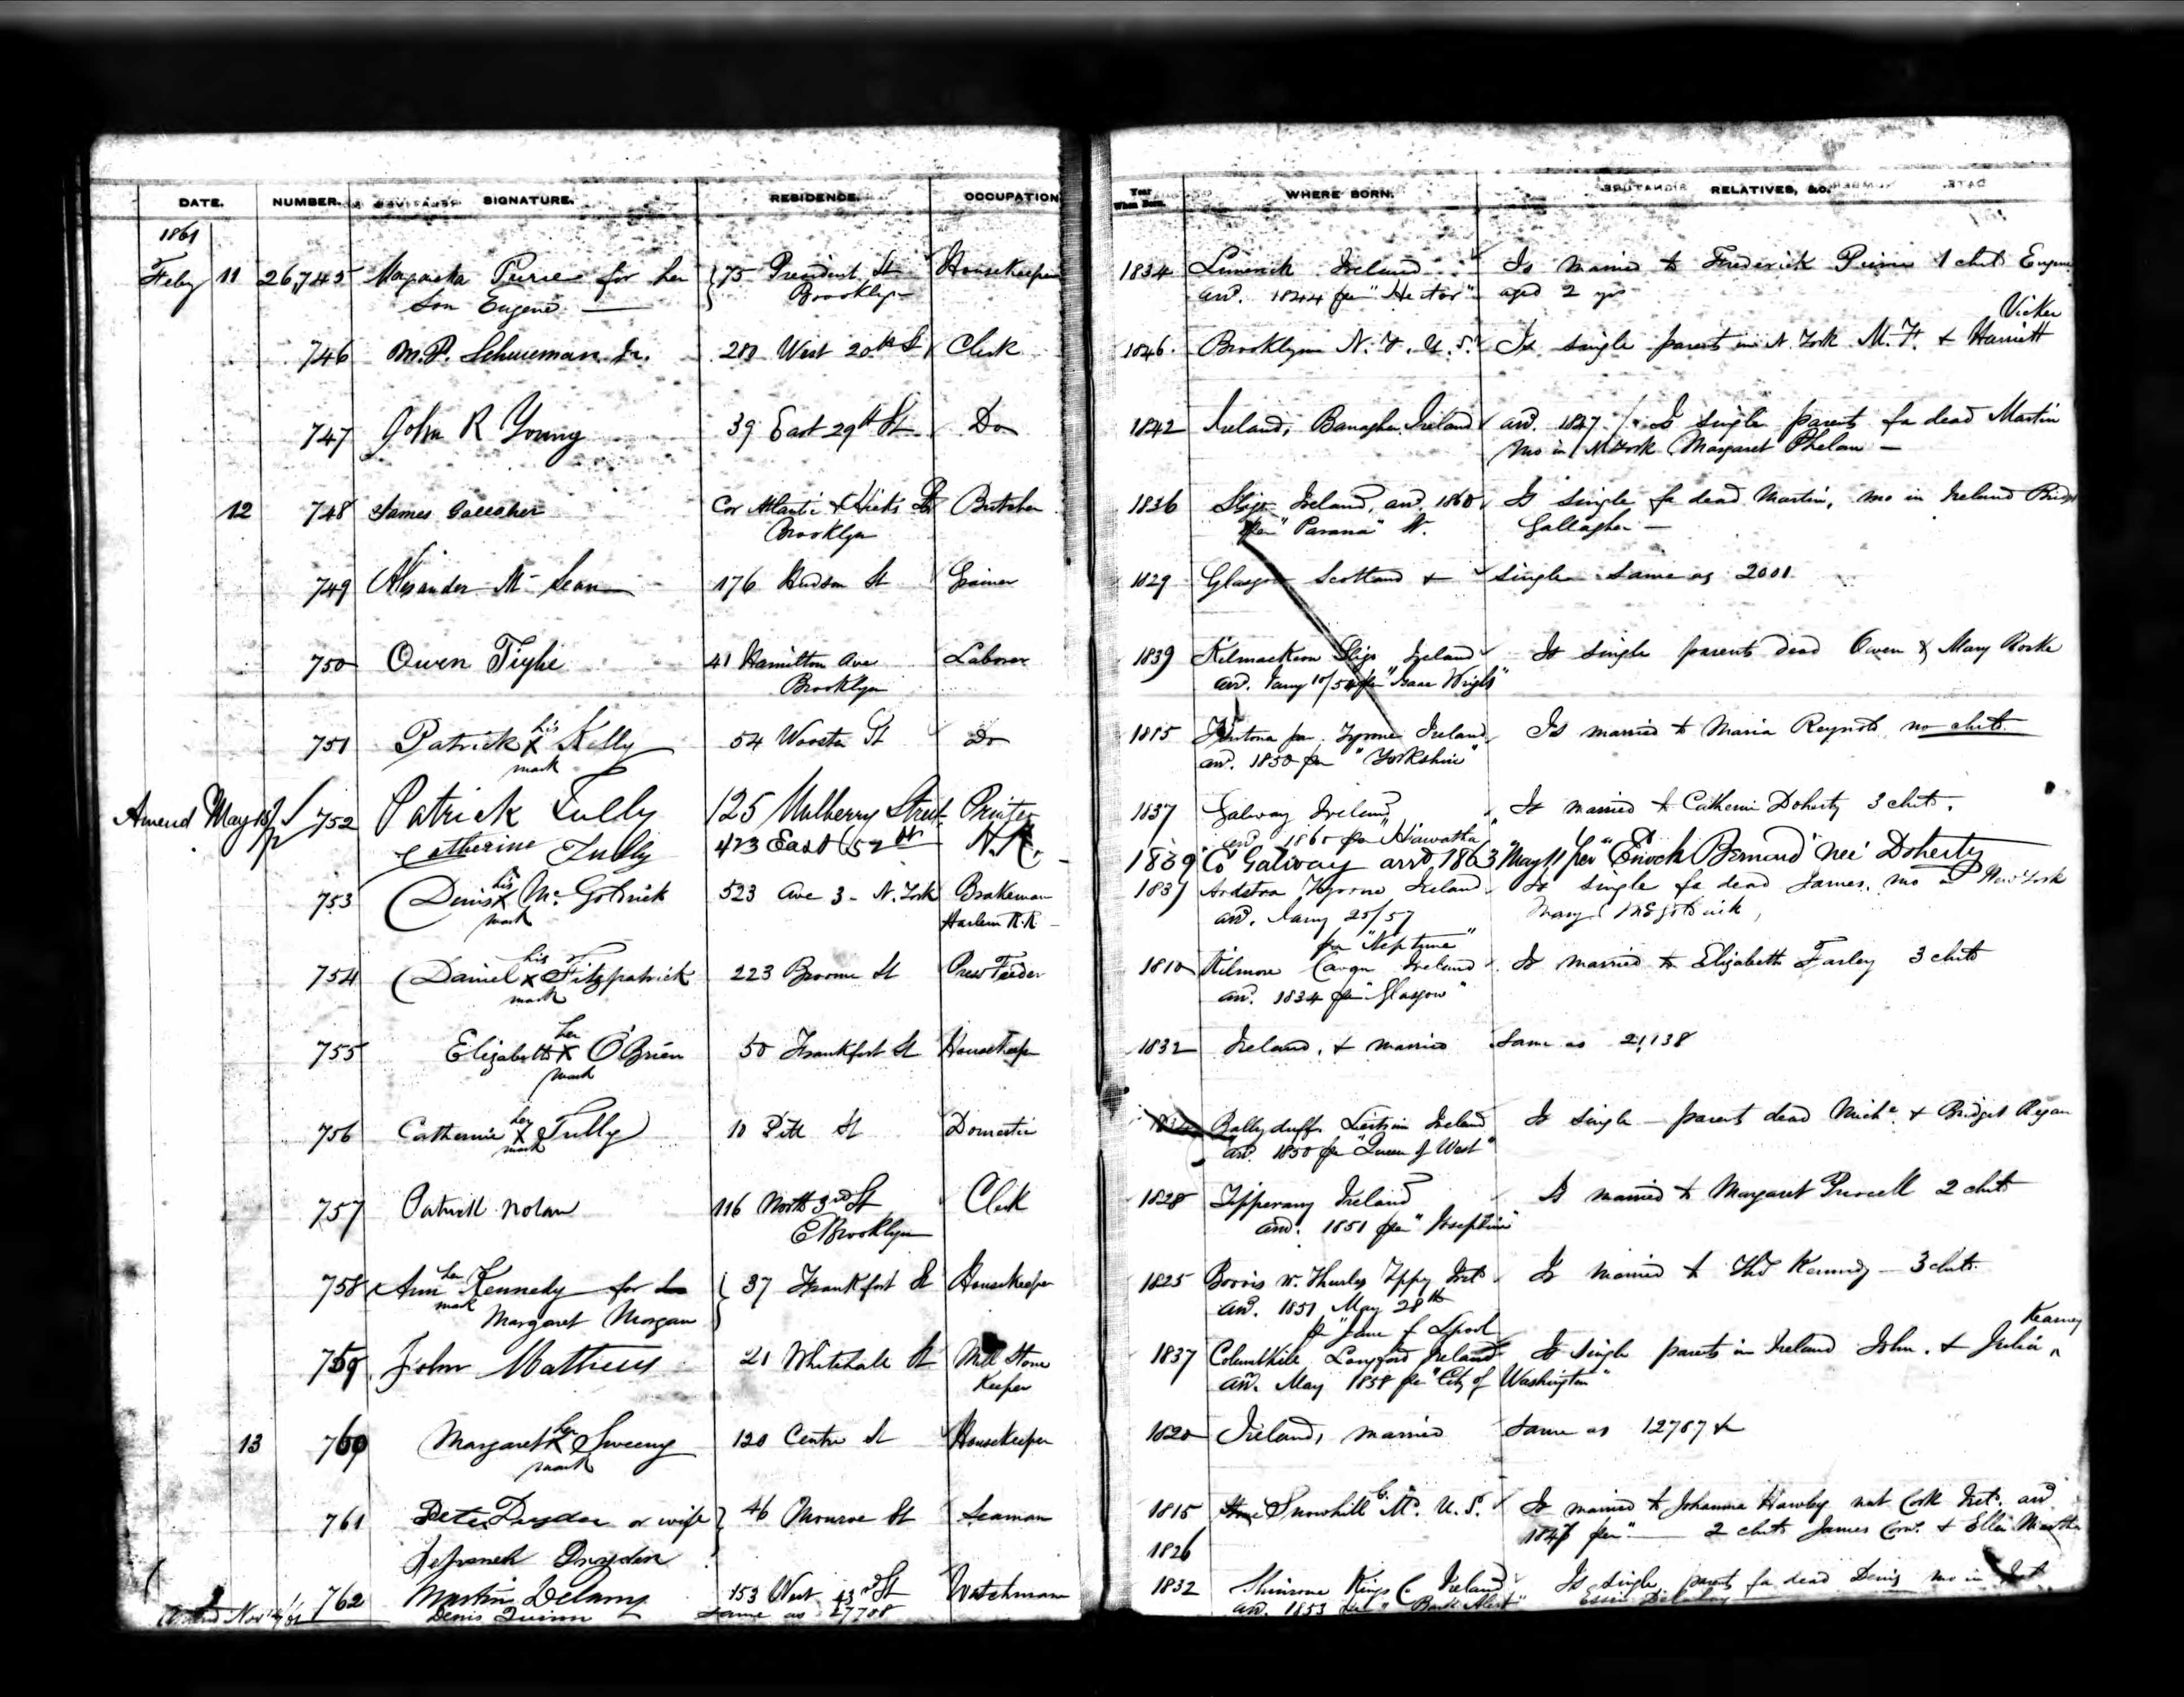 DATE. NUMBER. SIGNATURE. RESIDENCE. OCCUPATION Year When Born. WHERE BORN. RELATIVES, &c.
1861
Feby 11 26,745 for her 75 President St Housekeeper 1834 Limerick Ireland Is married to Frederick 1 child Eugene
Son Eugene Brooklyn arr. 1844 per "Hector" aged 2 yrs
Vicker
746 M.P. Schureman Jr. West 20th St Clerk 1846 Brooklyn N.Y. U.S. Is single parents in N. York M.F. & Harriett
747 John R Young 39 East 29th St Do 1842 Ireland, Banagher Ireland arr. 1847 Is single parents fa dead Martin
mo in N York Margaret Phelan —
12 748 James Gallaher Cor Atlantic & Hicks St Butcher 1836 Sligo Ireland, arr. 1860 Is single fa dead Martin, mo in Ireland
Brooklyn per "Parana" Gallagher —
749 Alexander McLean 176 Hudson St 1829 Glasgow Scotland & single same as 2001
750 Owen Tighe 41 Hamilton Ave Laborer 1839 Sligo Ireland Is single parents dead Owen & Mary Rorke
Brooklyn arr. Jany 10/54 per "Isaac Wright"
751 Patrick his X mark Kelly 54 Wooster St Do 1815 Fintona Tyrone Ireland Is married to Maria Reynolds no chds.
arr. 1850 per "Yorkshire"
Amend May 752 Patrick Tully 125 Mulberry Street Printer 1837 Galway Ireland Is married to Catherine Doherty 3 chds.
arr 1860 per "Hiawatha"
Catherine Tully 423 East 52nd H.K. 1839 Co Galway arrd 1863 May 11 per "Enoch Bernard" Neé Doherty
753 Denis his X mark McGoldrick 523 Ave 3 - N. York Brakeman 1837 Tyrone Ireland Is single fa dead James, mo in New York
Harlem R.R. arr. Jany 25/57 Mary McGoldrick
per "Neptune"
754 Daniel his X mark Fitzpatrick 223 Broome St Press Feeder 1810 Kilmore Cavan Ireland Is married to Elizabeth Farley 3 chds
arr. 1834 per "Glasgow"
755 Elizabeth her X mark O'Brien 50 Frankfort St Housekeeper 1832 Ireland, & married same as 21,138
756 Catherine her X mark Tully 10 Pitt St Domestic Ballyduff Leitrim Ireland Is single — parents dead Michl. & Bridget Regan
arr. 1850 per "Queen of West"
757 Patrick Nolan 116 North 3rd St Clerk 1828 Tipperary Ireland Is married to Margaret Purcell 2 chds
E Brooklyn arr. 1851 per "Josephine"
758 Ann her X mark Kennedy for 37 Frankfort St Housekeeper 1825 Borris Thurles Tippy Irel Is married to Thos Kennedy — 3 chds.
Margaret Morgan arr. 1851 May 28th
Kearney
759 John Mathews 21 Whitehall St Mill Stone 1837 Columbkille Longford Ireland Is single parents in Ireland John & Julia
Keeper arr. May 1858 per "City of Washington"
13 760 Margaret her X mark Sweeny 120 Centre St Housekeeper 1820 Ireland, married same as 12787 &
761 Peter Dryden or wife 46 Monroe St Seaman 1815 Snowhill Md. U.S. Is married to Johanna nat Cork Irel. arr
1847 per "— 2 chds James & Ellen Martha
Johannah Dryden 1826
762 Martin Delany 153 West 43rd St Watchman 1832 Shinrone Kings Co Ireland Is single parents fa dead Denis mo in Irel
Denis Quinn same as 27708 arr. 1853 per "Bark Alert" Delany